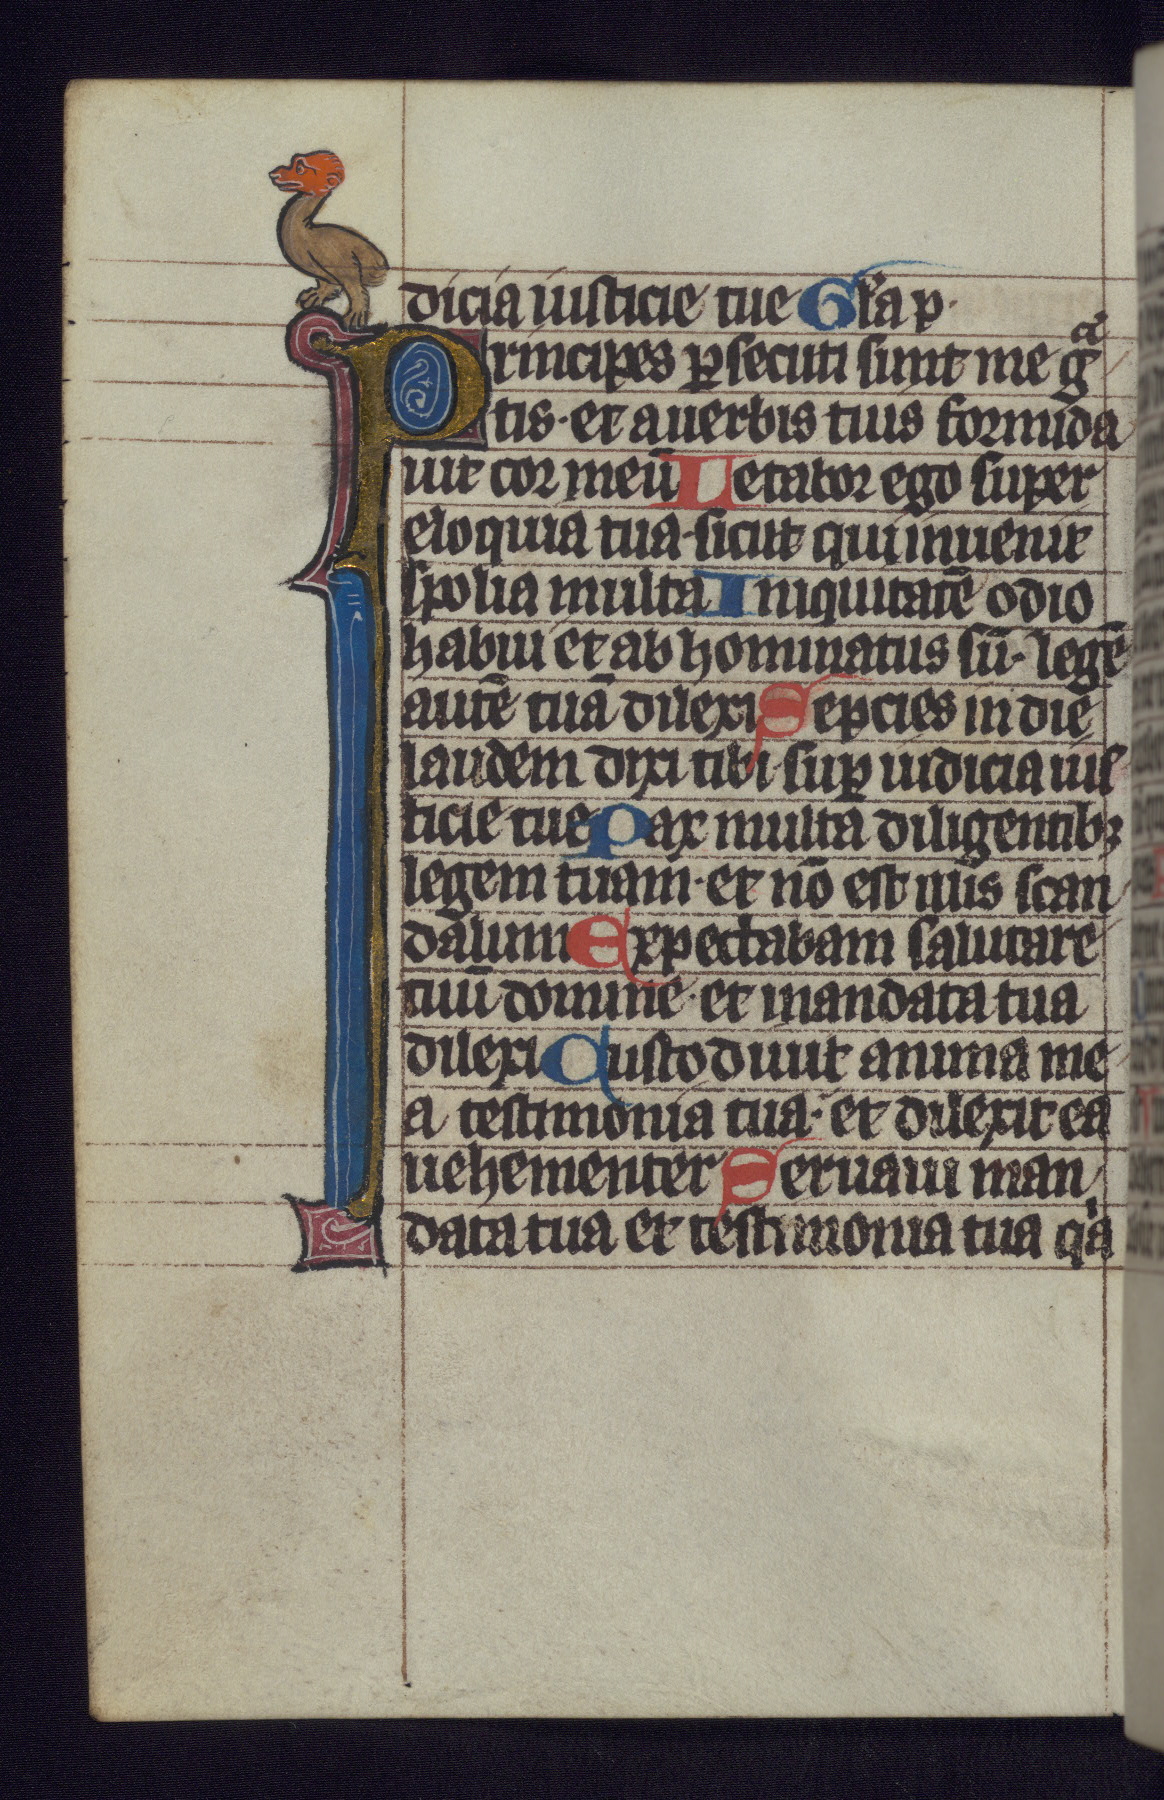 dicia iusticie tue Gl'a p.
Principes p̱secuti sunt me gͣ
tis· et a uerbis tuis formida
uit cor meū Letabor ego super
eloquia tua· sicut qui inuenit
spolia multa Iniquitatē odio
habui et abhominatus sū· legē
autē tuā dilexi Sepcies in die
laudem dixi tibi· suꝑ iudicia ius
ticie tue Pax multa diligentibꝫ
legem tuam· et nō est illis scan
dalum Expectabam salutare
tuū domine· et mandata tua
dilexi Custodiuit anima me
a testimonia tua· et dilexit ea
uehementer Seruaui man
data tua et testimonia tua qͥa